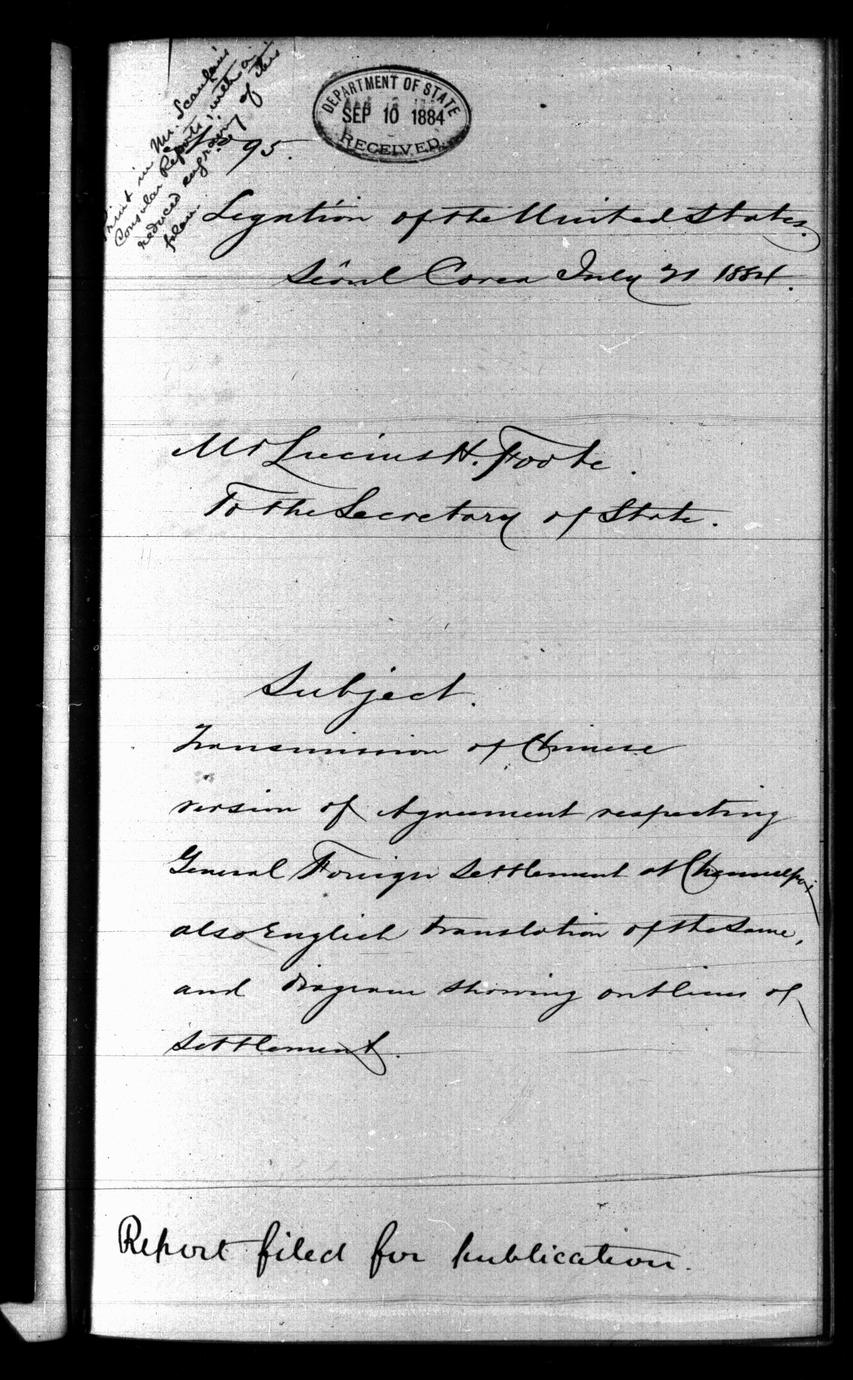 Print in Mr. Scanlan's
Consular Reports, with a
reduced engraving of this
plan.
DEPARTMENT OF STATE
SEP 10 1884
RECEIVED
95.
Legation of the United States.
Séoul Corea July 21 1884.
Mr Lucius H. Foote.
To the Secretary of State.
Subject.
Transmission of Chinese
version of Agreement respecting
General Foreign Settlement at Chemulpo;
also English translation of the same,
and diagram showing outlines of
settlement.
Report filed for publication.